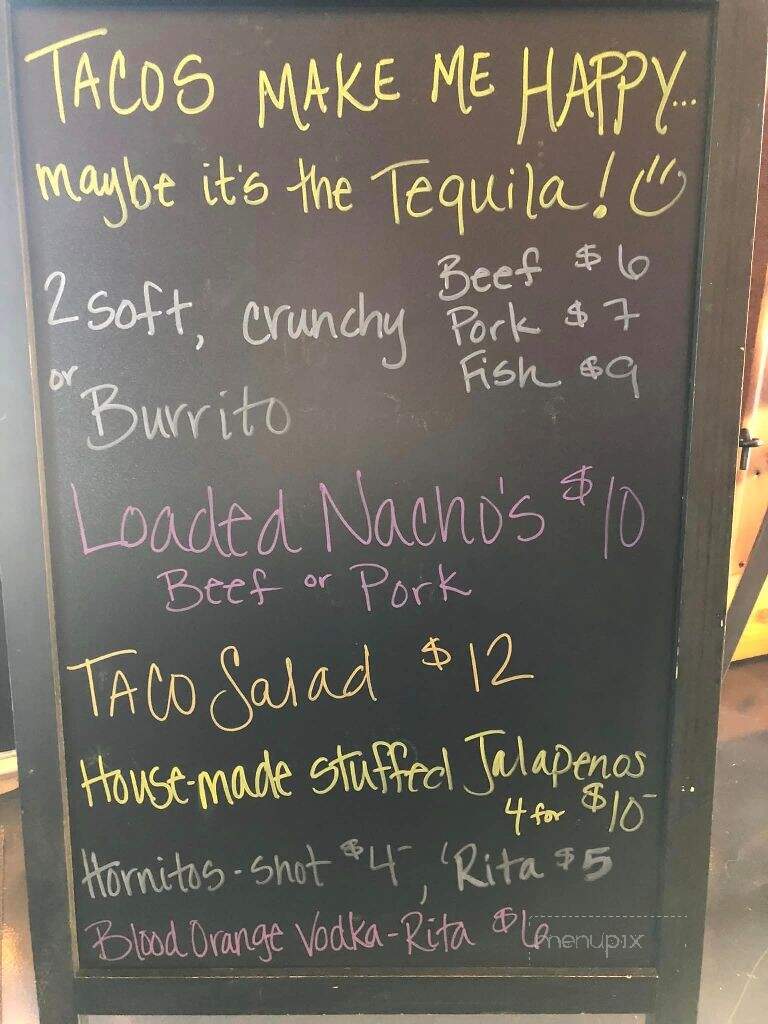 TACOS MAKE ME HAPPY...
maybe it's the Tequila!
2 soft, crunchy
or Burrito
Beef $6
Pork $7
Fish $9
Loaded Nacho's $10
Beef or Pork
TACO Salad $12
House-made stuffed Jalapenos
4 for $10-
Hornitos-shot $4-, 'Rita $5
Blood Orange Vodka-Rita $6
menupix